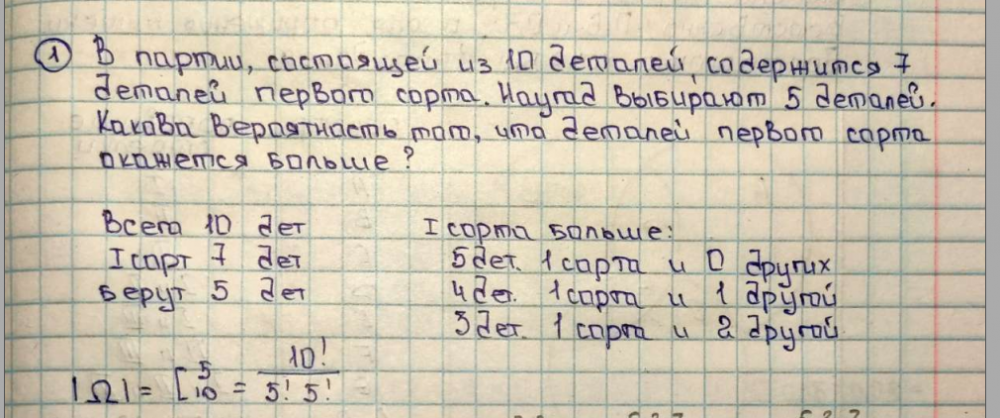 ① В партии, состоящей из 10 деталей, содержится 7
деталей первого сорта. Наугад выбирают 5 деталей.
Какова вероятность того, что деталей первого сорта
окажется больше?
Всего 10 дет
I сорт 7 дет
Берут 5 дет
I сорта больше:
5 дет. 1 сорта и 0 других
4 дет. 1 сорта и 1 другой
3 дет. 1 сорта и 2 другой
|Ω| = C⁵₁₀ = 10! / 5! 5!